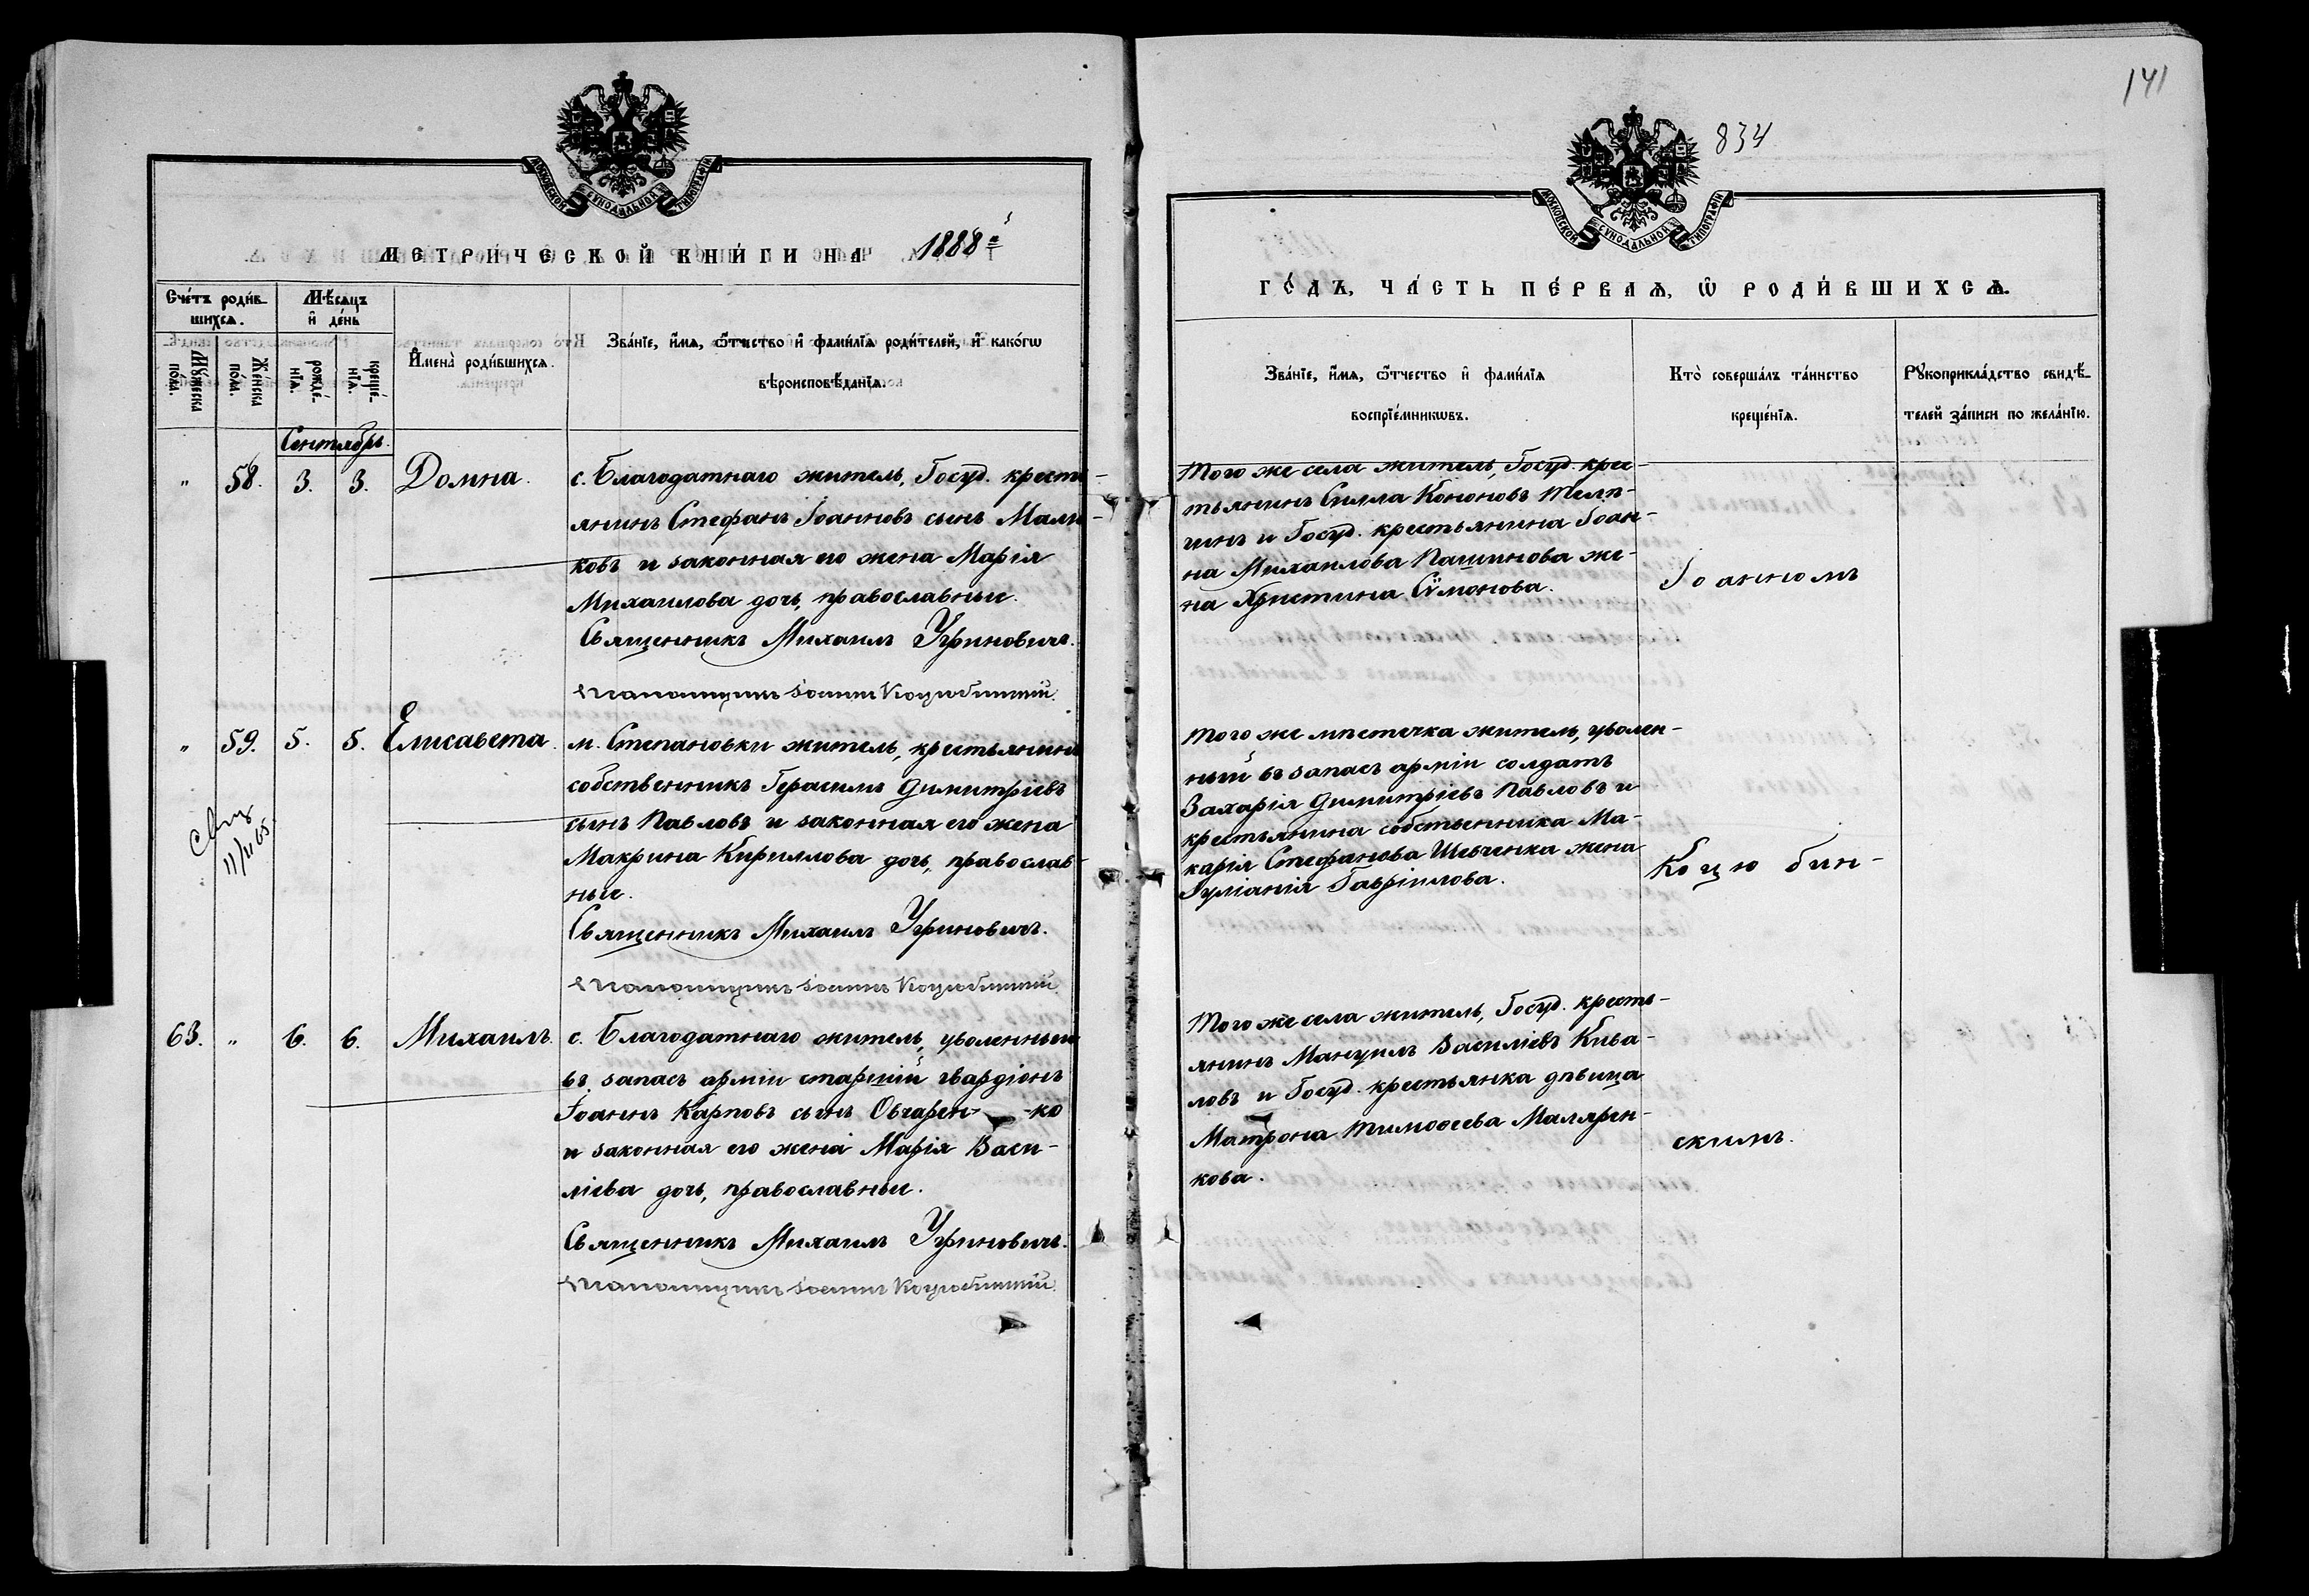 141
834
МОСКОВСКОЙ СУНОДАЛЬНОЙ ТИПОГРАФІИ
МОСКОВСКОЙ СУНОДАЛЬНОЙ ТИПОГРАФІИ
МЕТРИ́ЧЕСКОЙ КНИ́ГИ НА 1888й
ГО́ДЪ, ЧА́СТЬ ПЕ́РВАѦ, Ѿ РОДИ́ВШИХСѦ.
Сче́тъ роди́в-
шихсѧ.
Мѣ́сѧцъ
и де́нь
Мꙋ́жеска
по́ла.
Же́нска
по́ла.
рожде́-
нїѧ.
креще́-
нїѧ.
И҆мена̀ роди́вшихсѧ.
Зва́нїе, и҆́мѧ, ѻ҆́тчество и҆ фами́лїѧ роди́телей, и҆ како́гѡ
вѣроисповѣ́данїѧ.
Зва́нїе, и҆́мѧ, ѻ҆́тчество и҆ фами́лїѧ
воспрїе́мникѡвъ.
Кто̀ соверша́лъ та́инство
креще́нїѧ.
Рꙋкоприкла́дство свидѣ́-
телей за́писи по жела́нїю.
Сентябрь.
„ 58. 3. 3. Домна.
с. Благодатнаго житель, Госуд. кресть-
янинъ Стефанъ Іоанновъ сынъ Мали-
ковъ и законная его жена Марія
Михаилова дочь, православные.
Священникъ Михаилъ Угриновичъ.
Псаломщикъ Іоаннъ Коцюбинскій.
Того же села житель, Госуд. крес-
тьянинъ Силла Кононовъ Теле-
гинъ и Госуд. крестьянина Іоан-
на Михаилова Пашинова же-
на Христина Сѵмонова.
Іоанномъ
„ 59. 5. 5. Елисавета.
м. Степановки житель, крестьянинъ
собственникъ Герасимъ Димитріевъ
сынъ Павловъ и законная его жена
Макрина Кириллова дочь, православ-
ные.
Священникъ Михаилъ Угриновичъ.
Псаломщикъ Іоаннъ Коцюбинскій.
11/II 65
Того же мѣстечка житель, уволен-
ный въ запасъ арміи солдатъ
Захарія Димитріевъ Павловъ и
крестьянина собственника Ма-
карія Стефанова Шевченка жена
Іуліанія Гавріилова.
Коцюбин-
63. „ 6. 6. Михаилъ.
с. Благодатнаго житель, уволенный
въ запасъ арміи старшій гвардіонъ
Іоаннъ Карповъ сынъ Овчарен- -ко
и законная его жена Марія Васи-
ліева дочь, православные.
Священникъ Михаилъ Угриновичъ.
Псаломщикъ Іоаннъ Коцюбинскій.
Того же села житель, Госуд. кресть-
янинъ Мануилъ Василіевъ Кива-
ловъ и Госуд. крестьянка дѣвица
Матрона Тимоѳеева Маларен-
кова.
скимъ.